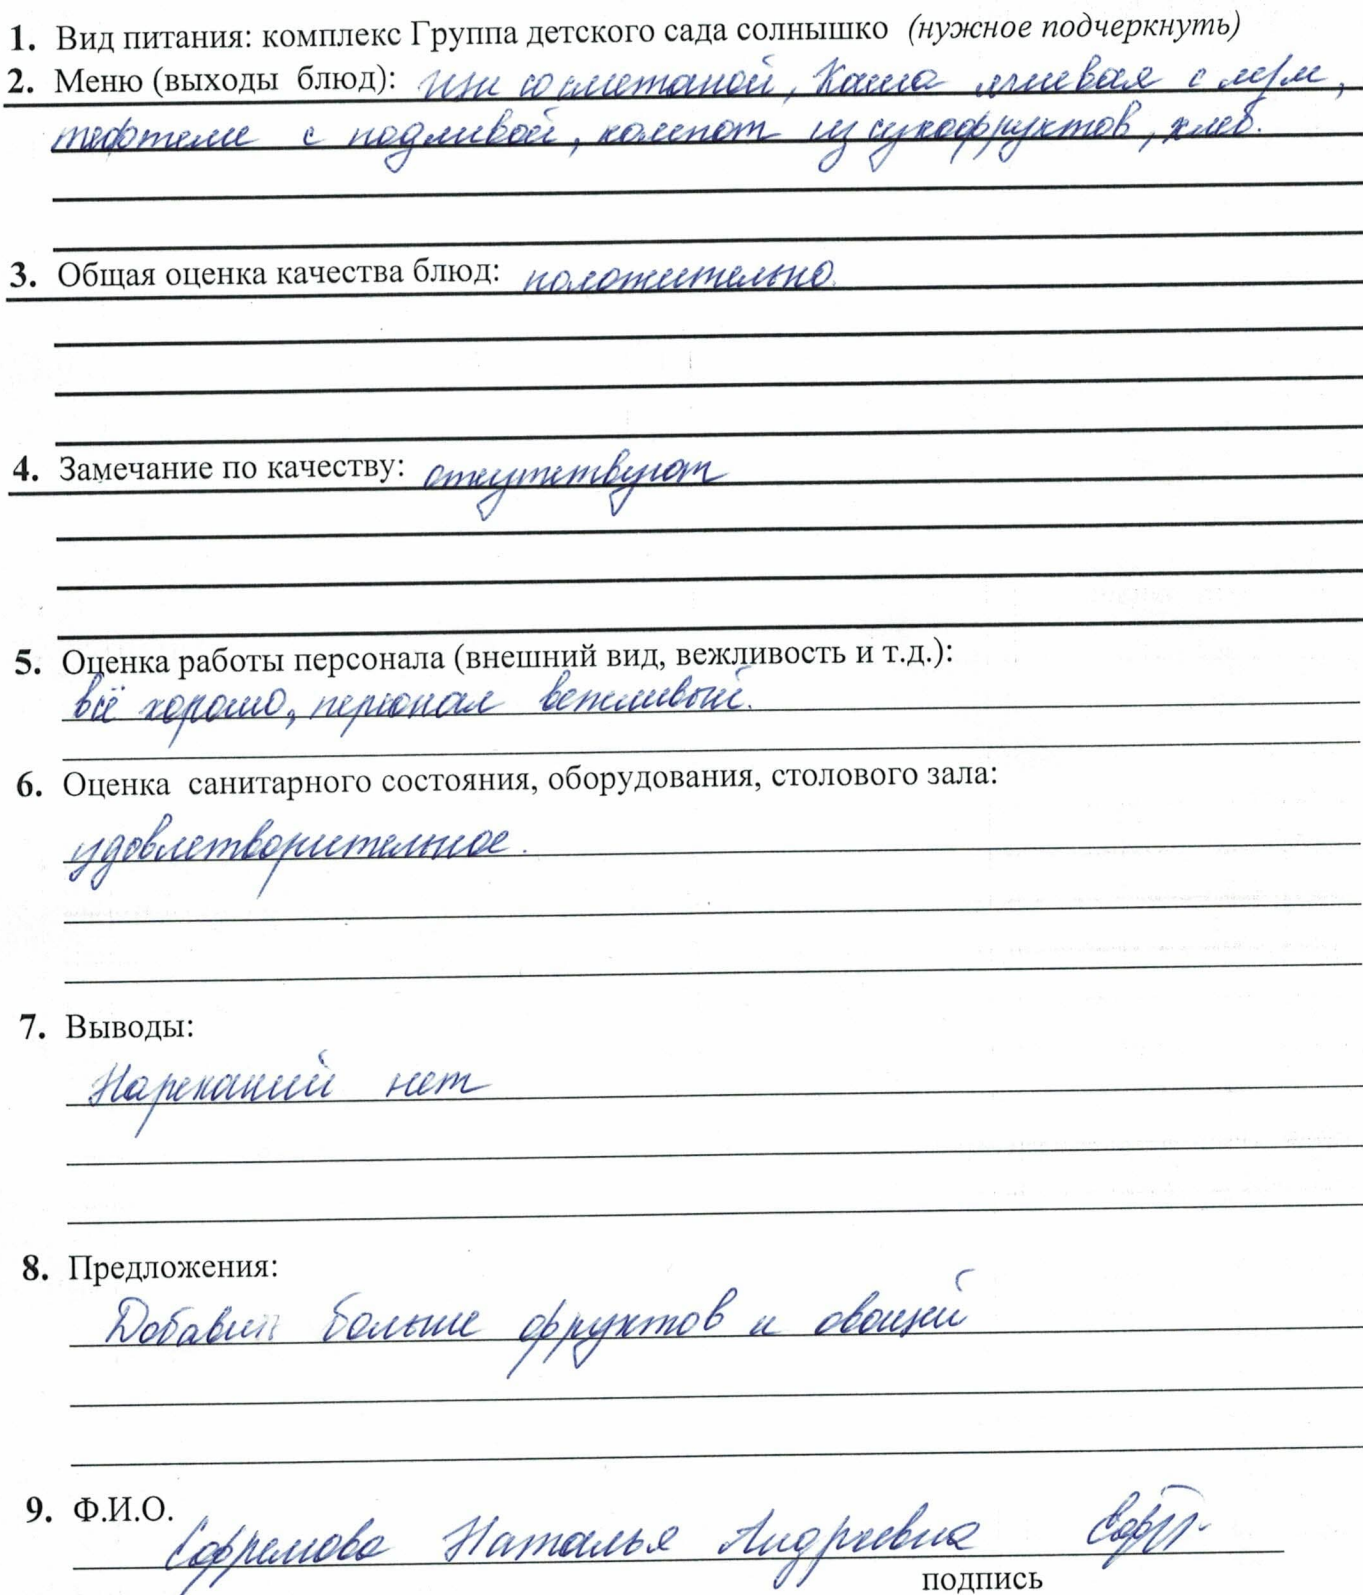 1. Вид питания: комплекс Группа детского сада солнышко (нужное подчеркнуть)
2. Меню (выходы блюд): щи со сметаной, Каша ячневая с м/м,
тефтели с подливой, компот из сухофруктов, хлеб.
3. Общая оценка качества блюд: положительно.
4. Замечание по качеству: отсутствуют
5. Оценка работы персонала (внешний вид, вежливость и т.д.):
всё хорошо, персонал вежливый.
6. Оценка санитарного состояния, оборудования, столового зала:
удовлетворительное.
7. Выводы:
Нареканий нет
8. Предложения:
Добавить больше фруктов и овощей
9. Ф.И.О.
Наталья Андреевна
подпись